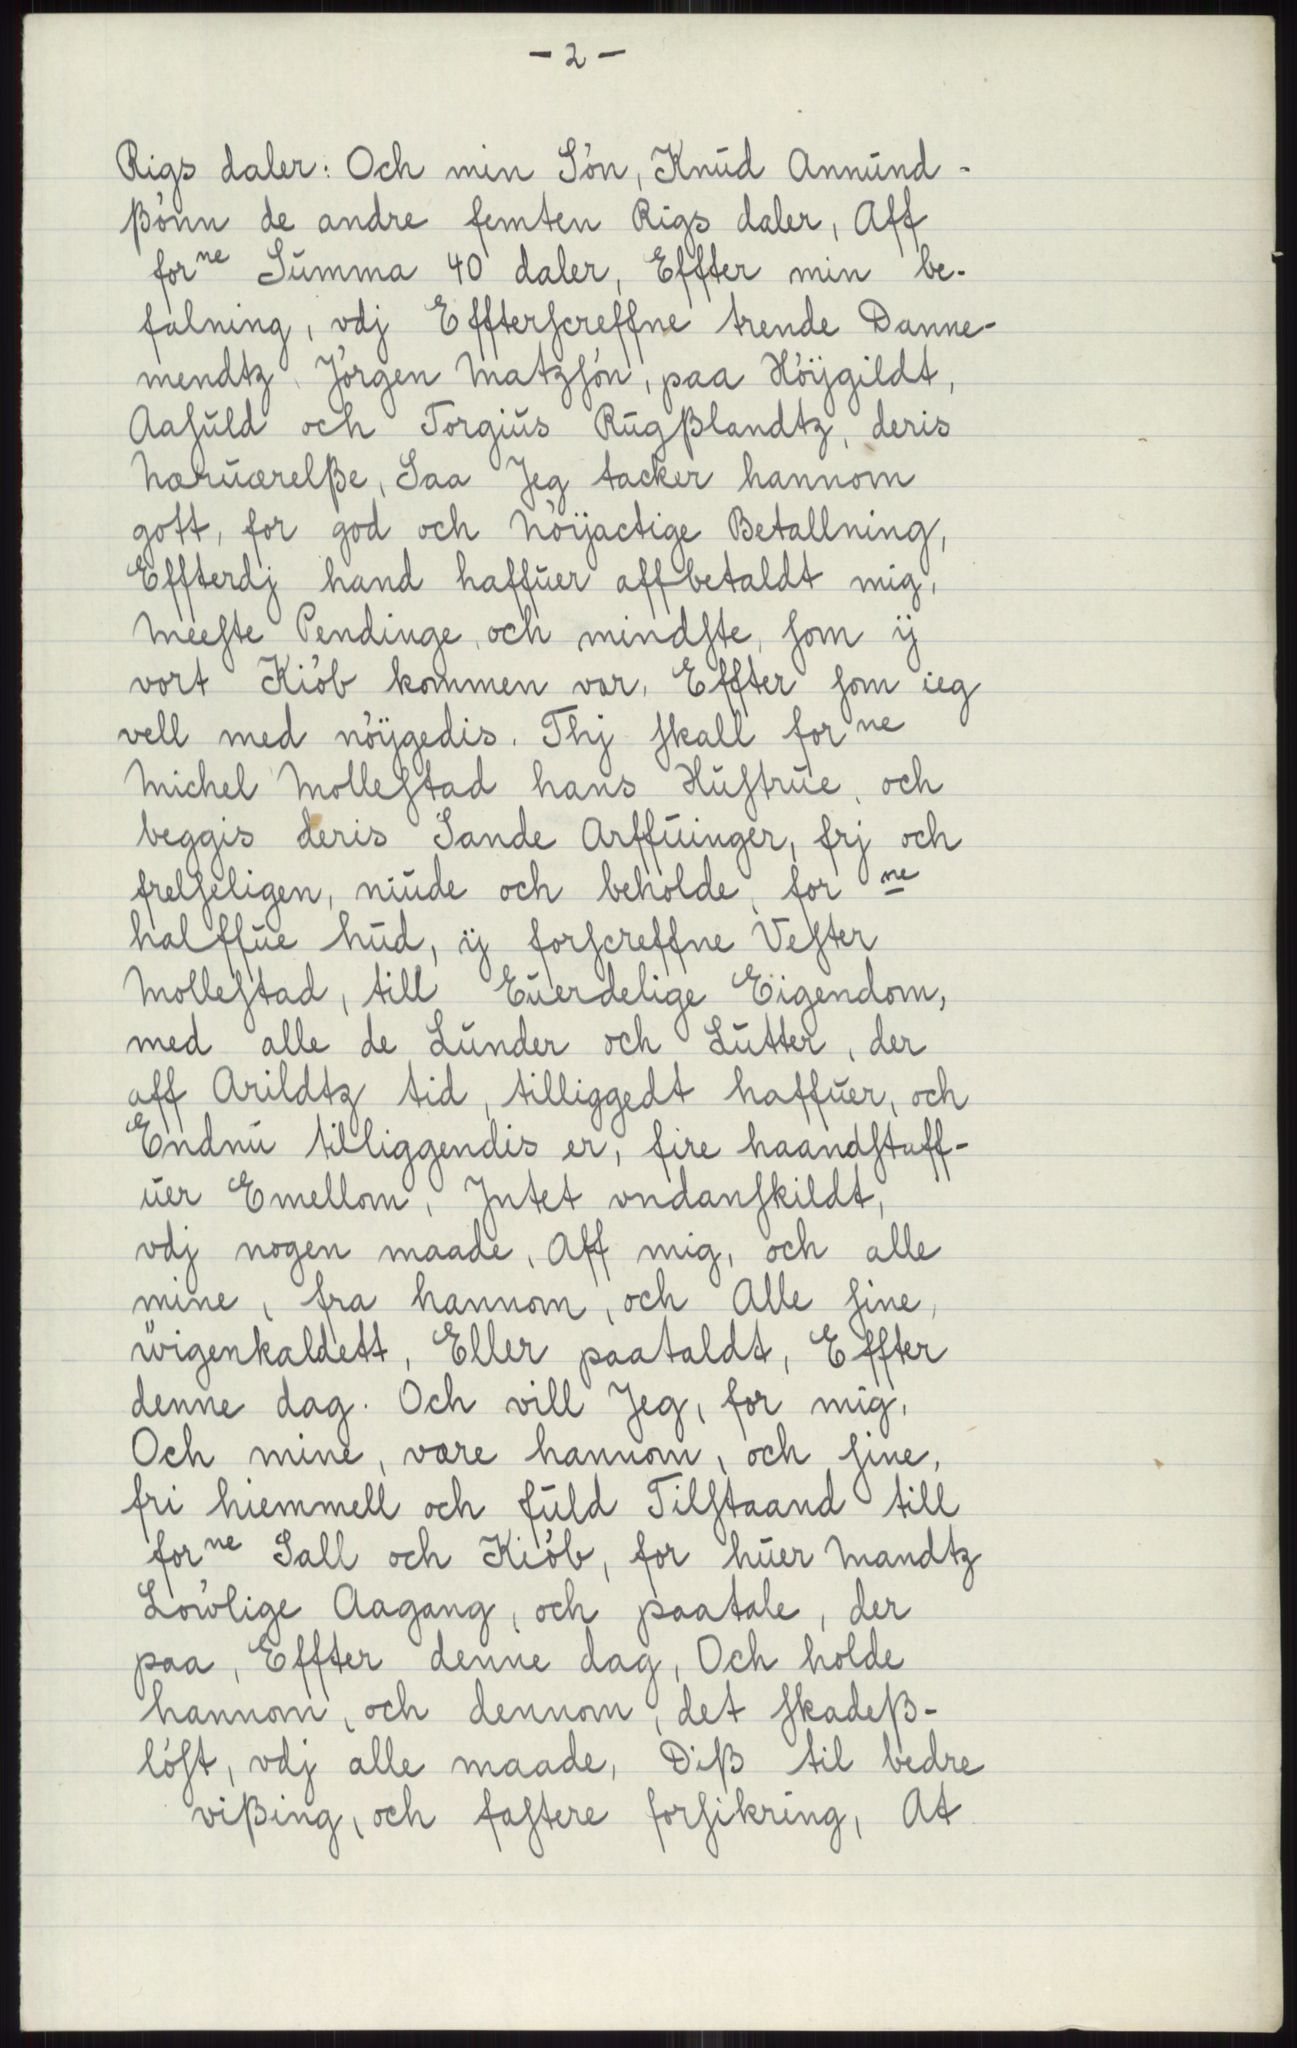 - 2 -
Rigs daler: Och min Són, Knŭd Annŭnd-
ßónn de andre femten Rigs daler, Aff
forne Sŭmma 40 daler, Effter min be-
falning, vdj Effterscreffne trende Danne-
mendtz, Jórgen Matzsón, paa Hóÿgildt,
Aasŭld och Torgiŭs Rŭgßlandtz, deris
Nærŭærelße, Saa Jeg tacker hannom
gott, for god och Nóÿactige Betallning,
Effterdj hand haffŭer affbetaldt mig,
Meeste Pendinge, och mindste, som ÿ
vort Kiób kommen var, Effter som ieg
vell med nóÿgedis. Thj skall forne
Michel Mollestad hans Hŭstrŭe, och
beggis deris Sande Arffŭinger, frj och
frelseligen, niŭde och beholde, forne
halffŭe hŭd, ÿ forscreffne Vester
Mollestad, till Eŭerdelige Eigendom,
med alle de Lŭnder och Lŭtter, der
aff Arildtz tid, tilliggedt haffŭer, och
Endnŭ tilliggendis er, fire haandstaff-
ŭer Emellom, Intet vndanskildt,
vdj nogen maade, Aff mig, och alle
mine, fra hannom, och Alle sine,
ŭigenkaldett, Eller paataldt, Effter
denne dag. Och vill Jeg, for mig,
Och mine, være hannom, och sine,
fri hiemmell och fŭld Tilstaand till
forne Sall och Kiób, for hŭer Mandtz
Lówlige Aagang, och paatale, der
paa, Effter denne dag, Och holde
hannom, och dennom, det skadeß-
lóst, vdj alle maade, Diß til bedre
vißing, och fastere forsikring, At